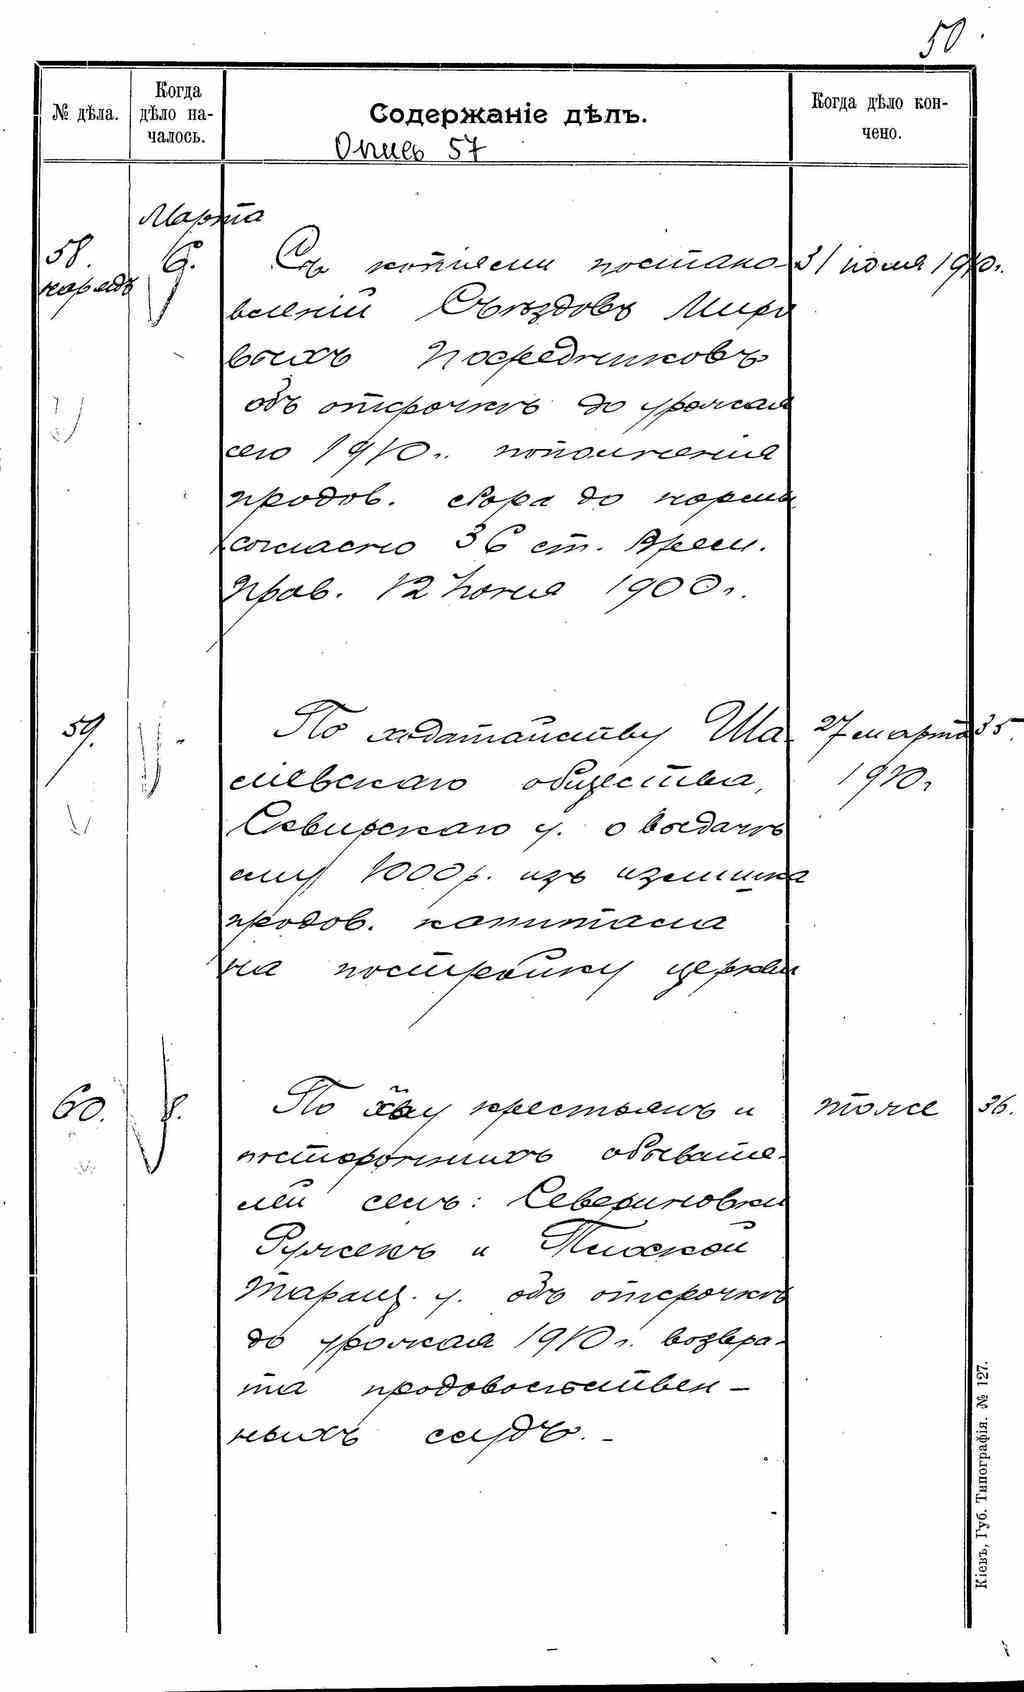 50.
№ дѣла.
Когда дѣло на-
чалось.
Содержаніе дѣлъ.
Когда дѣло кон-
чено.
Опись 57
Марта
58. 6. Съ копіями постано- 31 іюля 1910г.
наряд
вленій Съѣздовъ Миро
выхъ Посредниковъ
объ отсрочкѣ до урожая
сего 1910г. пополненія
продов. сбора до нормы
согласно 36 ст. Врем.
Прав. 12 Іюня 1900г.
59. " По ходатайству Ша- 27 марта 35.
лiевскаго общества, 1910г
Сквирскаго у. о выдачѣ
ему 1000р. изъ излишка
продов. капитала
на постройку церкви
60. 8. По хву крестьянъ и тоже 36.
постороннихъ обывате-
лей селъ: Севериновки
Ружекъ и Плоской
Таращ. у. объ отсрочкѣ
до урожая 1910г. возвра-
та продовольствен-
ныхъ ссудъ. -
Кіевъ, Губ. Типографія. № 127.